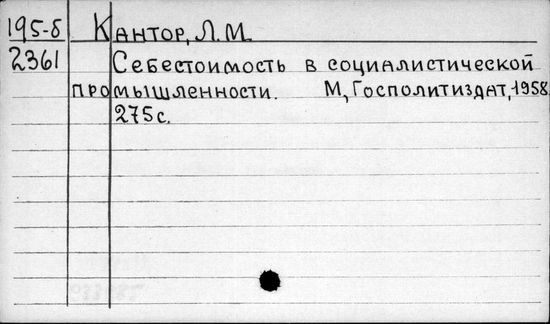 195-8 Кантор, Л. М.
2361 Себестоимость в социалистической
промышленности. М., Госполитиздат, 1958.
275 с.